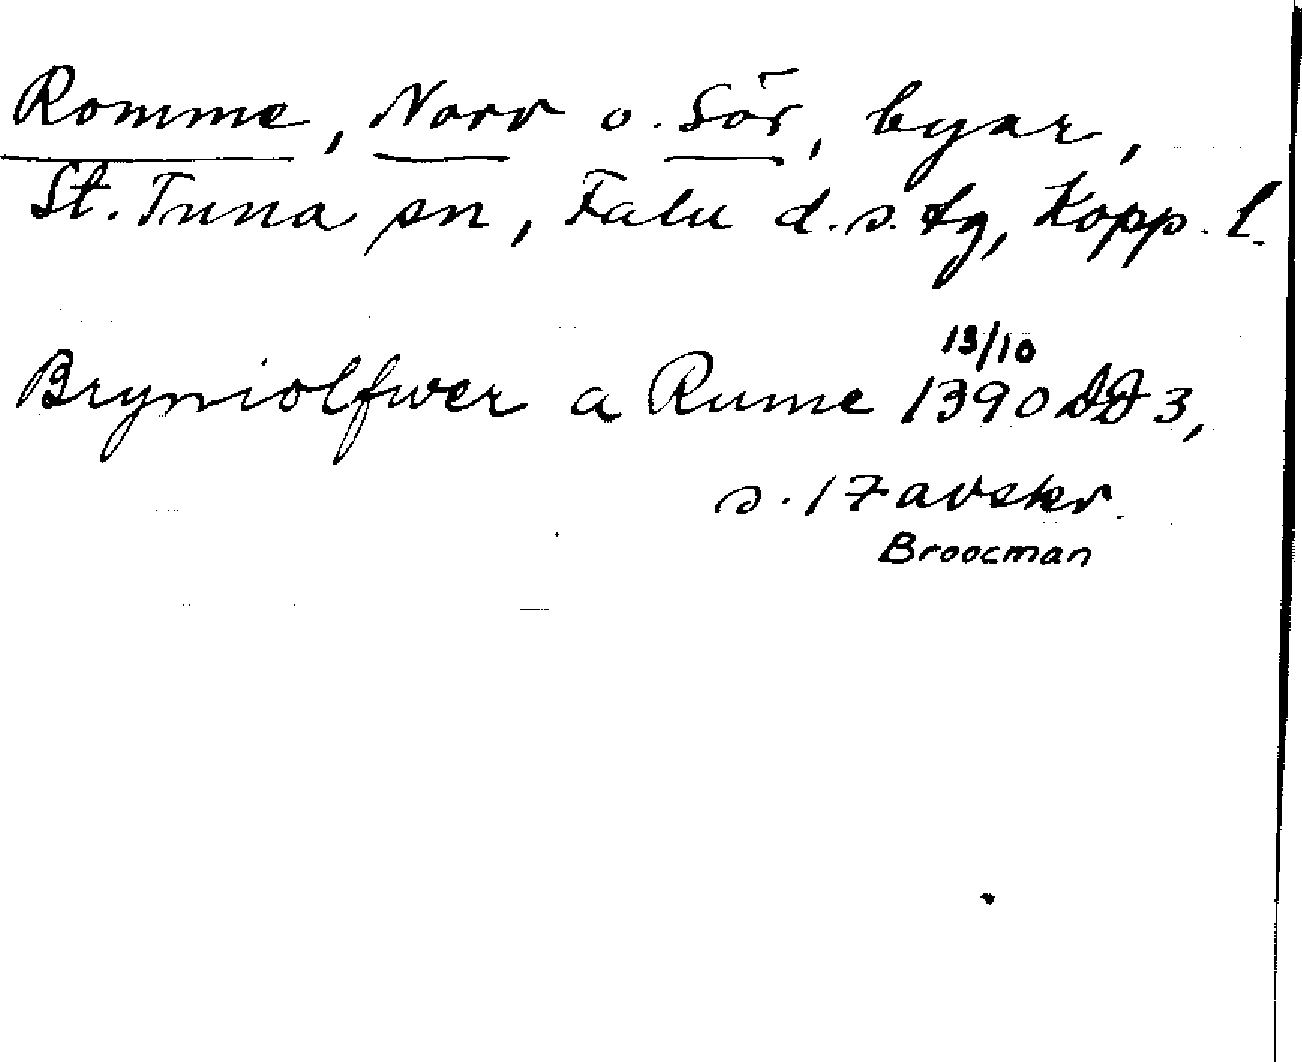 Romme, Norr o. Sör, byar,
St. Tuna sn, Falu d.s. tg, Kopp. l.
13/10
Bryniolfwer a Rume 1390 DD 3,
s. 17 avskr.
Broocman